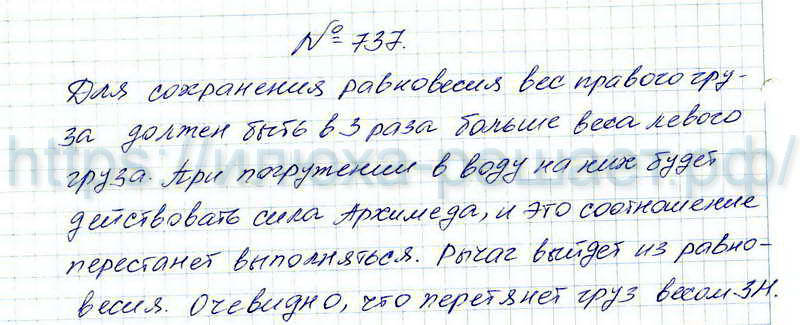 № 737.
Для сохранения равновесия вес правого гру-
за должен быть в 3 раза больше веса левого
груза. При погружении в воду на них будет
действовать сила Архимеда, и это соотношение
перестанет выполняться. Рычаг выйдет из равно-
весия. Очевидно, что перетянет груз весом 3Н.
https://илюха-решает.рф/